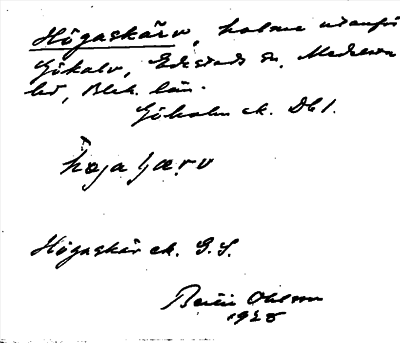 Högaskärv, holme utanför
Gökalv, Edestads sn, Medelsta
hd, Blek. län.
Gökalv ek. Db 1.
hǿgaʃærv
Högaskär ek. G. S.
Bertil Ohlsson
1925